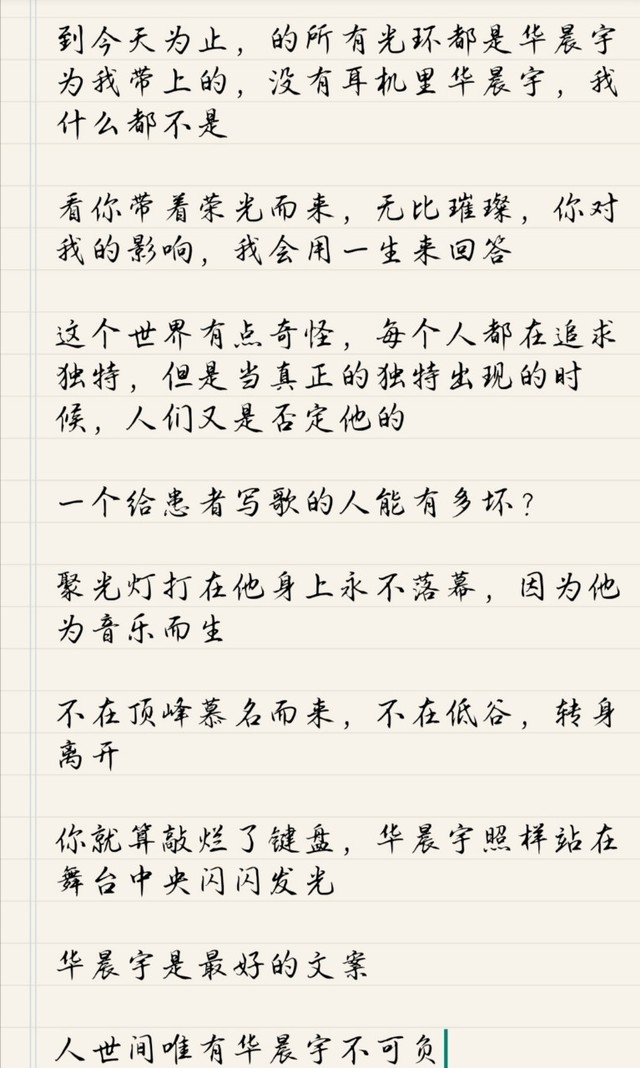 到今天为止，的所有光环都是华晨宇
为我带上的，没有耳机里华晨宇，我
什么都不是
看你带着荣光而来，无比璀璨，你对
我的影响，我会用一生来回答
这个世界有点奇怪，每个人都在追求
独特，但是当真正的独特出现的时
候，人们又是否定他的
一个给患者写歌的人能有多坏？
聚光灯打在他身上永不落幕，因为他
为音乐而生
不在顶峰慕名而来，不在低谷，转身
离开
你就算敲烂了键盘，华晨宇照样站在
舞台中央闪闪发光
华晨宇是最好的文案
人世间唯有华晨宇不可负